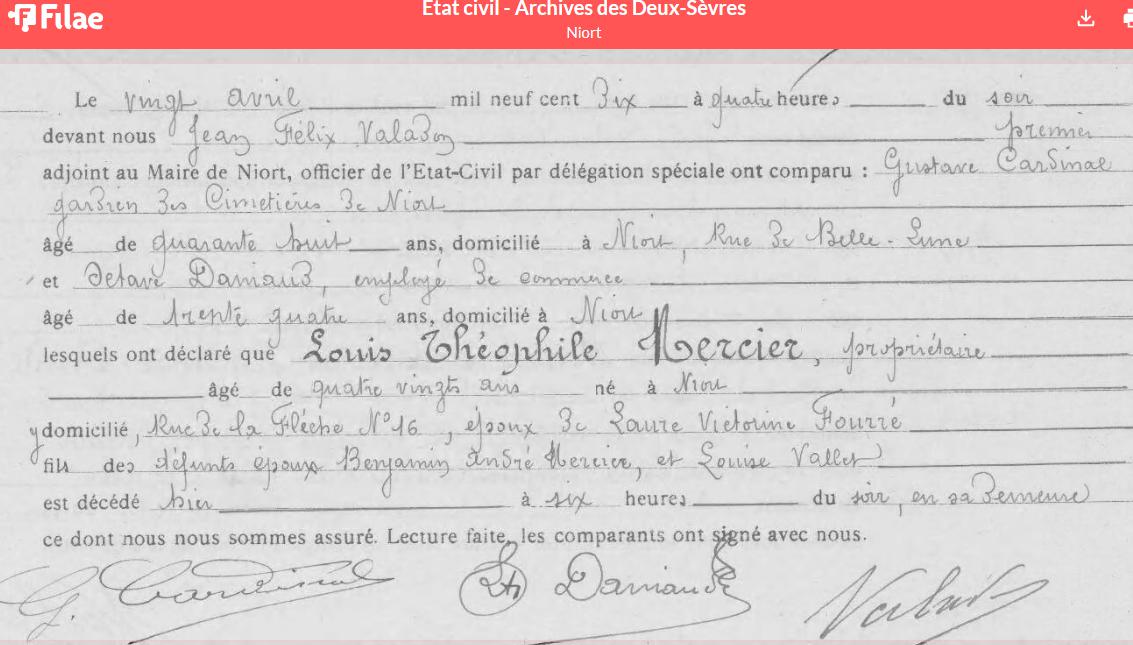 Filae
Etat civil - Archives des Deux-Sèvres
Niort
Le vingt avril mil neuf cent dix à quatre heures du soir
devant nous Jean Félix Valadon premier
adjoint au Maire de Niort, officier de l'Etat-Civil par délégation spéciale ont comparu : Gustave Cardinal
gardien des Cimetières de Niort
âgé de quarante huit ans, domicilié à Niort, Rue de Belle-Lune
et Octave Daniaud, employé de commerce
âgé de trente quatre ans, domicilié à Niort
lesquels ont déclaré que Louis Théophile Mercier, propriétaire
âgé de quatre vingts ans né à Niort
y domicilié, Rue de la Flèche N°16, époux de Laure Victorine Fourré
fils des défunts époux Benjamin André Mercier, et Louise Vallet
est décédé hier à six heures du soir, en sa demeure
ce dont nous nous sommes assuré. Lecture faite, les comparants ont signé avec nous.
G. Cardinal Daniaud